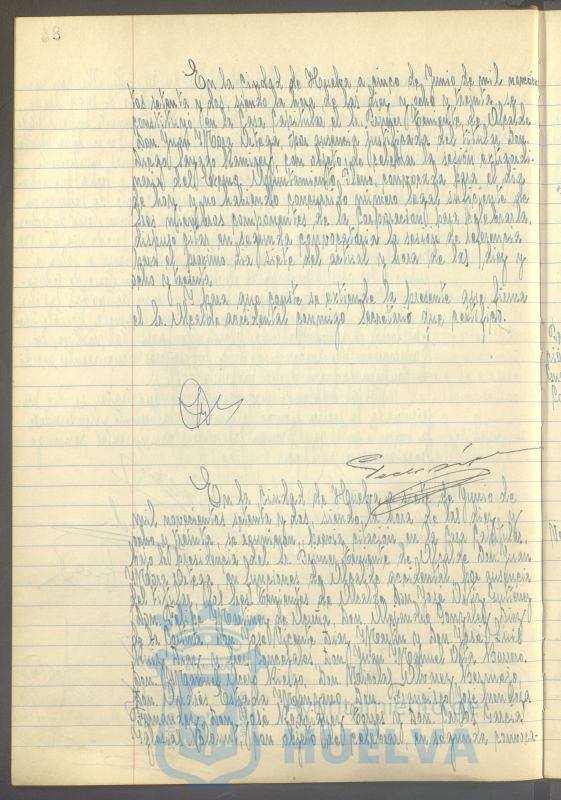 88
En la ciudad de Huelva a cinco de Junio de mil novecien-
tos setenta y dos, siendo la hora de las diez y ocho y treinta se
constituyó en la Casa Capitular el Sr. Primer Teniente de Alcalde
Don Juan Mora Ortega por ausencia justificada del titular Don
Diego Sayago Ramírez, con objeto de celebrar la sesión extraordi-
naria del Excmo. Ayuntamiento Pleno, convocada para el día
de hoy, y no habiendo concurrido número legal suficiente de
Sres. miembros componentes de la Corporación para celebrarla,
dispuso citar en segunda convocatoria la sesión de referencia
para el próximo día siete del actual y hora de las diez y
ocho y treinta.
Y para que conste se extiende la presente que firma
el Sr. Alcalde accidental conmigo Secretario que certifico.
En la Ciudad de Huelva a siete de Junio de
mil novecientos setenta y dos, siendo la hora de las diez y
ocho y treinta, se reunieron, previa citación, en la Casa Capitular,
bajo la presidencia del Sr. Primer Teniente de Alcalde Don Juan
Mora Ortega, en funciones de Alcalde accidental por ausencia
del titular, los Sres. Tenientes de Alcalde Don José
Don Felipe Martínez de Acuña, Don Alejandro González
de la Don José Vicente Díaz y Don José Luis
Ruiz Díaz y Sres. Concejales Don Juan Manuel Borrero,
Don Manuel Don Marcelo Álvarez Bermejo,
Don Andrés Don Francisco José Mendoza
Fernández, Don José Rodríguez y Don Carlos García
con objeto de celebrar, en segunda convoca-
Ayuntamiento de
HUELVA